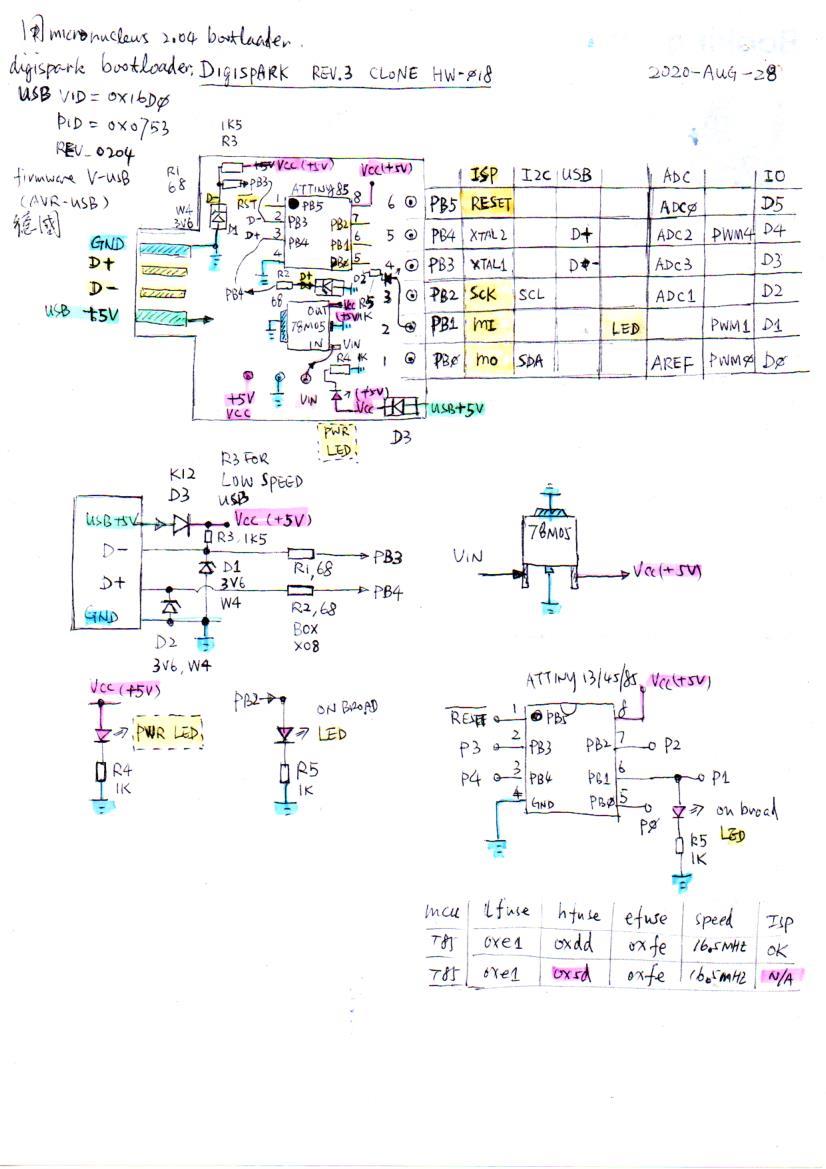 micronucleus 2.04 bootloader.
digispark bootloader. DIGISPARK REV.3 CLONE HW-018
2020-AUG-28
USB VID = 0x16D0
PID = 0x0753
REV_0204
firmware V-USB
(AVR-USB)
GND
D+
D-
USB +5V
1K5
R3
R1
68
W4
3V6
D-
D1
+5V VCC (+5V)
PB3
VCC (+5V)
ATTINY85
RST
D-
D+
1
2
3
4
PB5
PB3
PB4
8
7
6
5
PB2
PB1
PB0
PB4
R2
68
D+
D2
OUT
78M05
IN
VCC
(+5V)
R5
1K
VIN
R4 1K
+5V
VCC
VIN
(+5V)
VCC
USB+5V
D3
PWR
LED
ISP I2C USB ADC IO
6 PB5 RESET ADC0 D5
5 PB4 XTAL2 D+ ADC2 PWM4 D4
4 PB3 XTAL1 D- ADC3 D3
3 PB2 SCK SCL ADC1 D2
2 PB1 MI LED PWM1 D1
1 PB0 MO SDA AREF PWM0 D0
K12
D3
R3 FOR
LOW SPEED
USB
USB+5V
VCC (+5V)
R3, 1K5
D-
PB3
R1, 68
D1
3V6
W4
D+
PB4
R2, 68
BOX
X08
GND
D2
3V6, W4
78M05
VIN
VCC(+5V)
VCC (+5V)
PWR LED
R4
1K
PB2
ON BROAD
LED
R5
1K
ATTINY 13/45/85
VCC(+5V)
RESET 1 PB5 8
P3 2 PB3 PB2 7 P2
P4 3 PB4 PB1 6 P1
4 GND PB0 5 P0
on broad
LED
R5
1K
mcu lfuse hfuse efuse speed ISP
T85 0xe1 0xdd 0xfe 16.5MHz OK
T85 0xe1 0x5d 0xfe 16.5MHz N/A